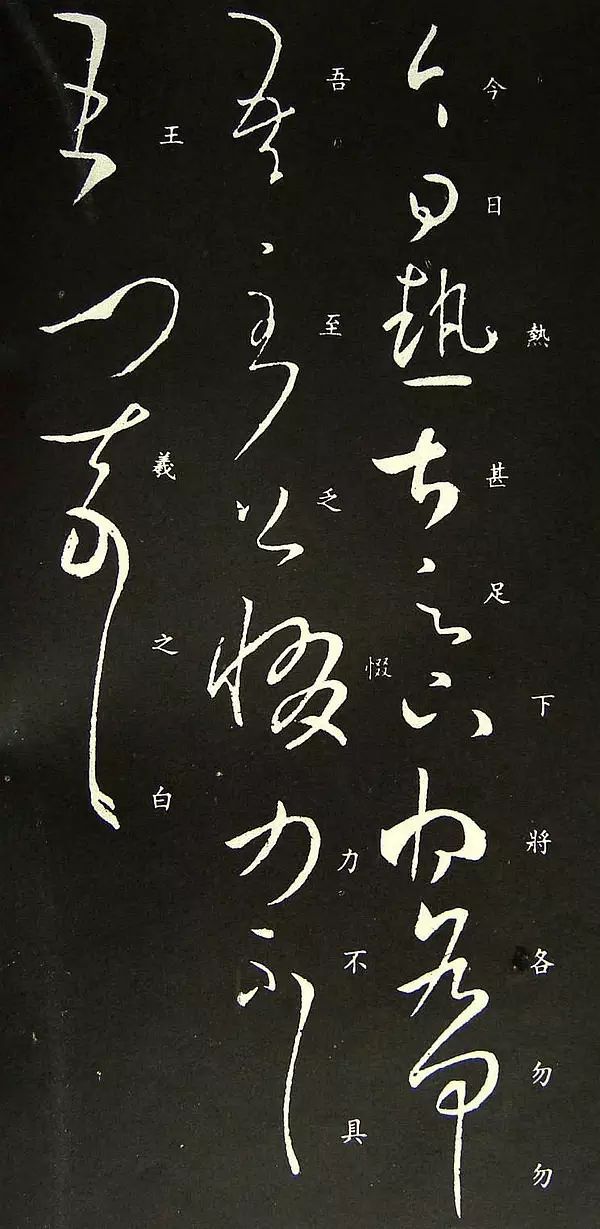 今日熱甚足下將各勿勿
吾至乏惙力不具
王羲之白